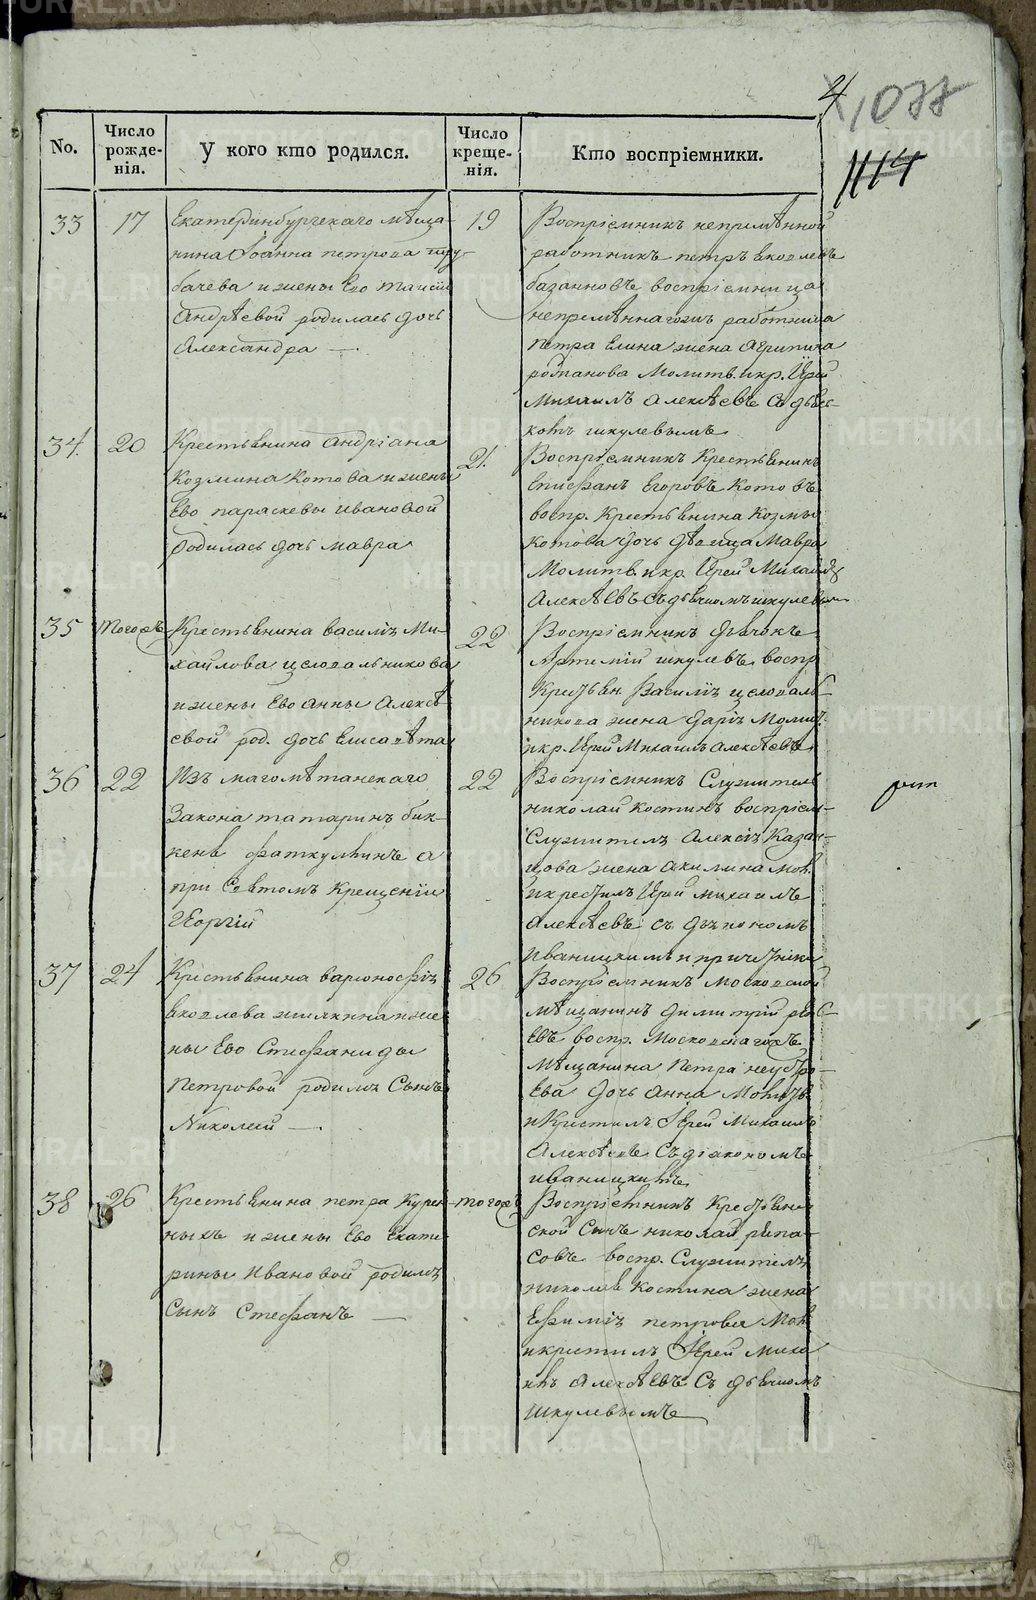 4
1077
1114
No.
Число рожде-нія.
У кого кто родился.
Число креще-нія.
Кто воспріемники.
33
17
Екатеринбургскаго мѣща-
нина Іоанна петрова
бачева и жены Ево таисіи
Андрѣевой родилась дочь
Александра —
19
Воспріемникъ непремѣнной
работникъ петръ яковлевъ
воспріемница
непремѣннагожъ работника
петра елина жена Агрипина
романова Молитв. и кр. Іерей
Михаилъ Алексѣевъ съ дьяч-
комъ шкулевымъ
34.
20
Крестьянина Андріана
Козмина Котова и жены
Ево параскевы ивановой
родилась дочь мавра
21.
Воспріемникъ Крестьянинъ
Епифанъ Егоровъ Котовъ
воспр. Крестьянина Козмы
Котова дочь дѣвица Мавра
Молитв. и кр. Іерей Михаилъ
Алексѣевъ съ дьячкомъ шкулевым
35
Тогожъ
Крестьянина василія Ми-
хайлова целовальникова
и жены Ево Анны Алексѣ-
евой род. дочь Елисавѣта
22
Воспріемникъ дьячокъ
Артемій шкулевъ воспр
Крестьян. Василія целоваль-
никова жена дарія Молит.
и кр. Іерей Михаилъ Алексѣевъ
36
22
Изъ магомѣтанскаго
Закона татаринъ бик-
кенѣ фаткулинъ а
при Святомъ Крещеніи
Георгій
22
Воспріемникъ Служитель
николай Костинъ воспріем-
Служителя Алексія Казан-
цова жена Акилина мол.
и крестилъ Іерей михаилъ
Алексѣевъ съ дьякономъ
иваницкимъ и причтніки
37
24
Крестьянина варфоломія
яковлева и же-
ны Ево Стефаниды
Петровой родился Сынъ
Николай —
26
Воспріемникъ московской
мѣщанинъ димитрій
евъ воспр. Московскагожъ
Мѣщанина Петра
ева дочь Анна Молитв
и Крестилъ Іерей Михаилъ
Алексѣевъ Съ діакономъ
иваницкимъ
38
26
Крестьянина петра Курен-
ныхъ и жены Ево Екате-
рины Ивановой родился
Сынъ Стефанъ —
тогожъ
Воспріемникъ Крестьян-
ской Сынъ николай рѣпа-
совъ воспр. Служителя
николая Костина жена
Ефимія петрова Мол.
и крестилъ Іерей миха
илъ Алексѣевъ Съ дьячкомъ
шкулевымъ
METRIKI.GASO-URAL.RU